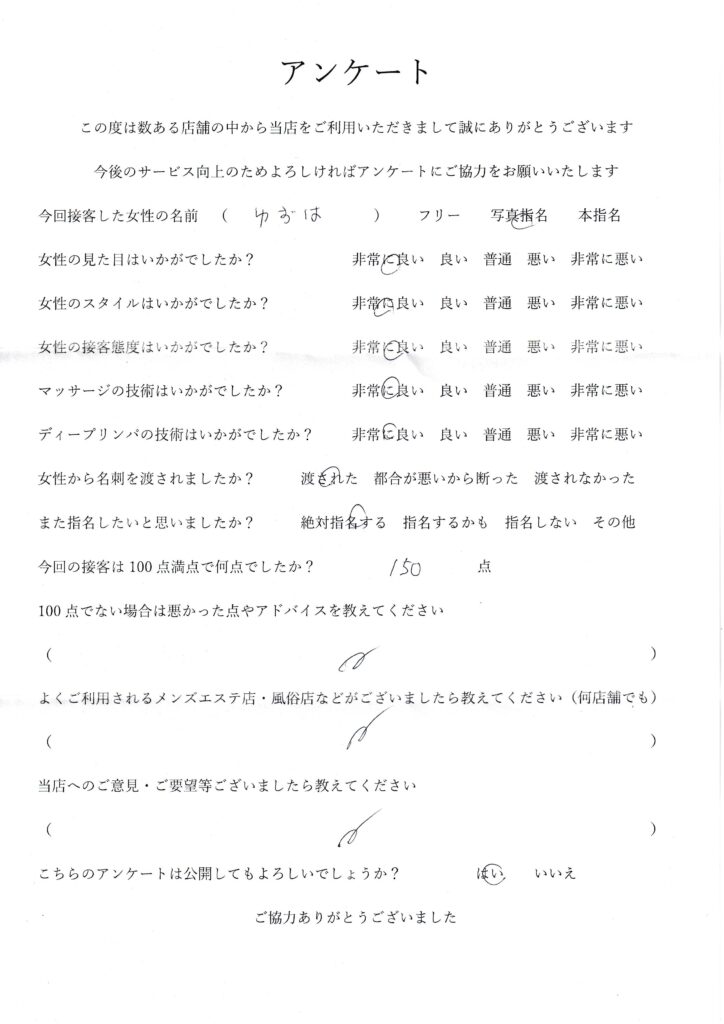 アンケート
この度は数ある店舗の中から当店をご利用いただきまして誠にありがとうございます
今後のサービス向上のためよろしければアンケートにご協力をお願いいたします
今回接客した女性の名前 （ ゆずは ） フリー 写真指名 本指名
女性の見た目はいかがでしたか？ 非常に良い 良い 普通 悪い 非常に悪い
女性のスタイルはいかがでしたか？ 非常に良い 良い 普通 悪い 非常に悪い
女性の接客態度はいかがでしたか？ 非常に良い 良い 普通 悪い 非常に悪い
マッサージの技術はいかがでしたか？ 非常に良い 良い 普通 悪い 非常に悪い
ディープリンパの技術はいかがでしたか？ 非常に良い 良い 普通 悪い 非常に悪い
女性から名刺を渡されましたか？ 渡された 都合が悪いから断った 渡されなかった
また指名したいと思いましたか？ 絶対指名する 指名するかも 指名しない その他
今回の接客は100点満点で何点でしたか？ 150 点
100点でない場合は悪かった点やアドバイスを教えてください
（ ）
よくご利用されるメンズエステ店・風俗店などがございましたら教えてください（何店舗でも）
（ ）
当店へのご意見・ご要望等ございましたら教えてください
（ ）
こちらのアンケートは公開してもよろしいでしょうか？ はい いいえ
ご協力ありがとうございました